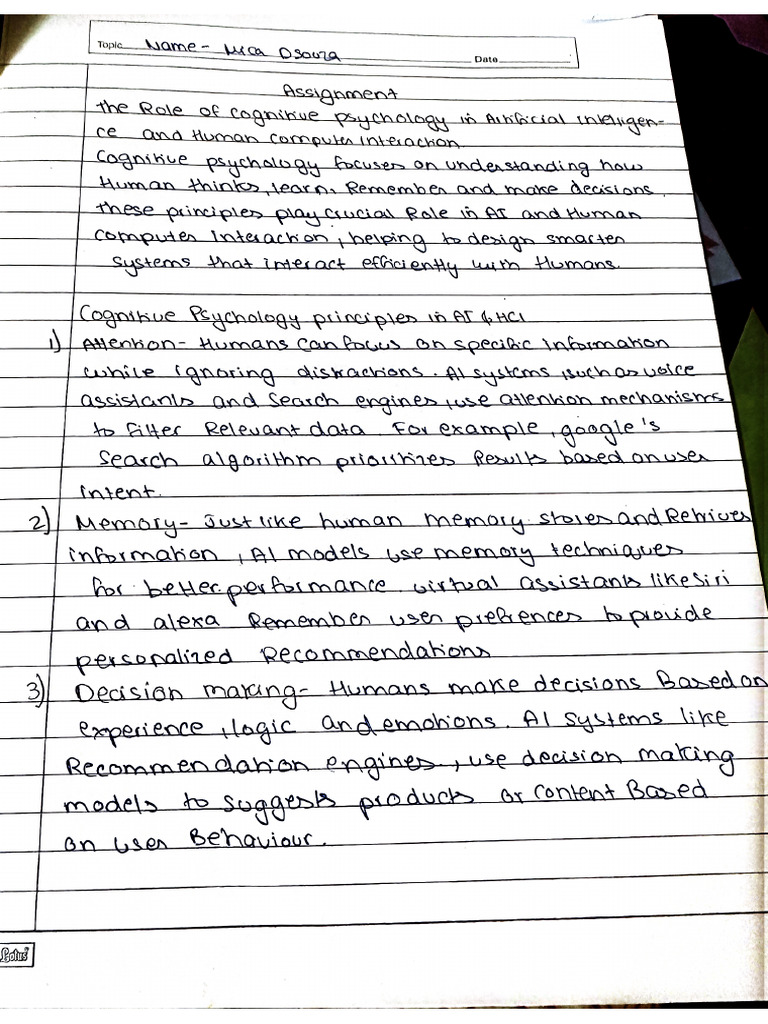 Topic Name - Mica Dsouza Date
Assignment
the Role of cognitive psychology in Artificial Intelligen-
ce and Human computer Interaction.
Cognitive psychology focuses on understanding how
Human thinks, learn, Remember and make decisions,
these principles play crucial Role in AI and Human
computer Interaction, helping to design smarter
systems that interact efficiently with Humans.
Cognitive Psychology principles in AI & HCI
1) Attention- Humans can focus on specific Information
while ignoring distractions. AI systems, such as voice
assistants and Search engines, use attention mechanisms
to filter Relevant data. For example, google's
Search algorithm prioritizes Results based on user
intent.
2) Memory- Just like human memory stores and Retrives
information, AI models use memory techniques
for better performance. virtual assistants like Siri
and alexa Remember user prefrences to provide
personalized Recommendations
3) Decision making- Humans make decisions Based on
experience, logic and emotions. AI systems like
Recommendation engines, use decision making
models to suggests products or content Based
on user Behaviour.
Lotus